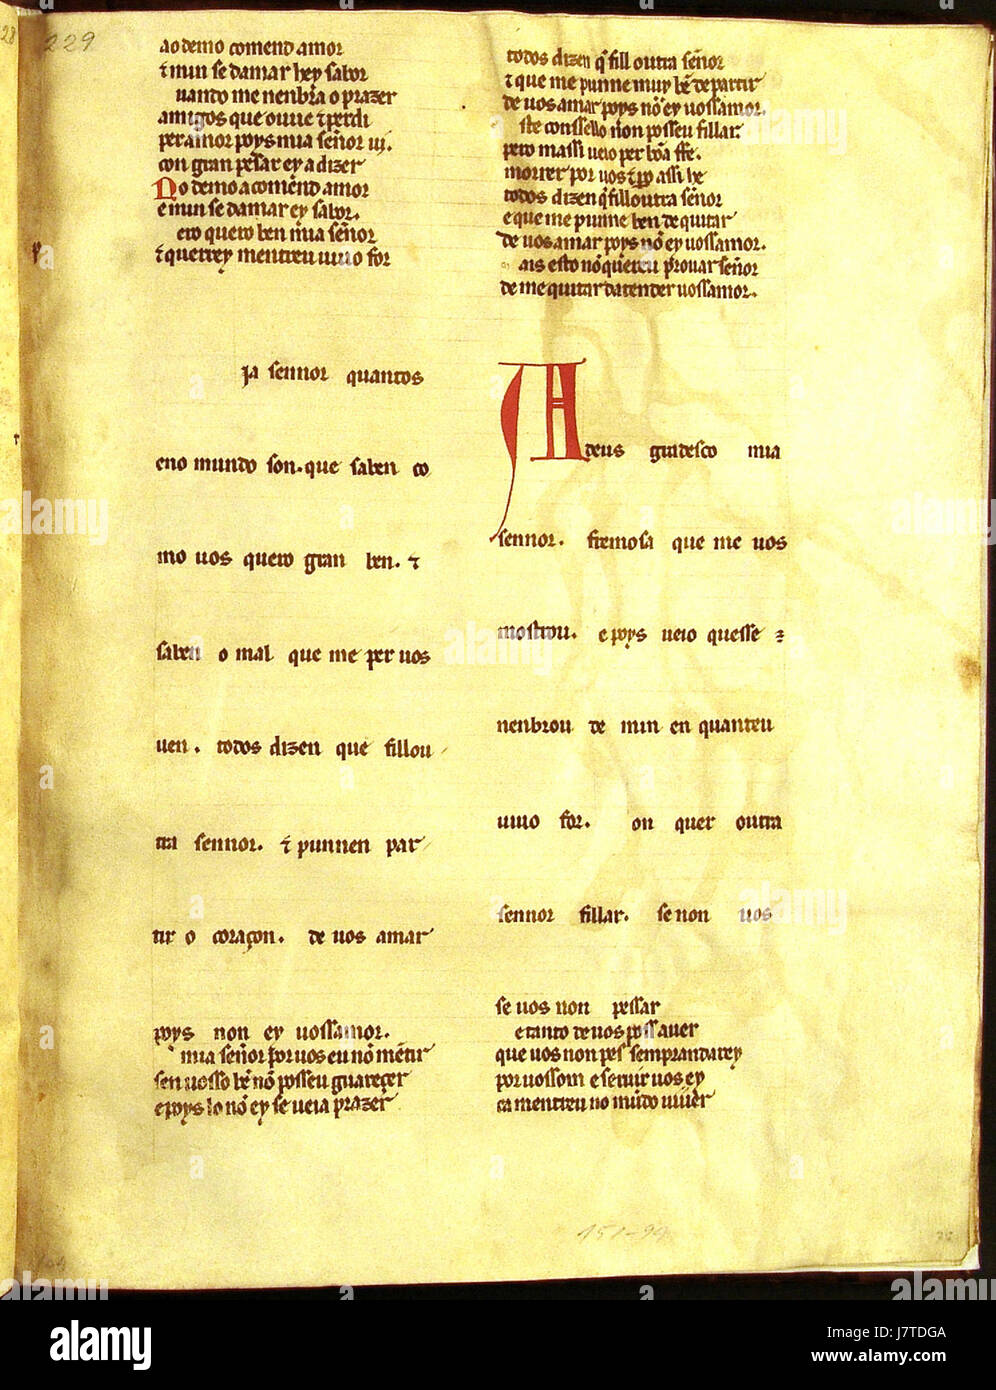 229
ao demo comend amor
⁊ nun se damar hey sabor
uando me nenbra o prazer
amigos que ouue ⁊ perdi
per amor poys mia señor ui.
con gran pesar ey a dizer
No demo a comẽd amor
e nun se damar ey sabor.
ero quero ben mia señor
⁊ querrey mentreu uiuo for
ia sennor quantos
eno mundo son. que saben co
mo uos quero gran ben. ⁊
saben o mal que me per uos
uen. todos dizen que fillou
tra sennor. ⁊ punnen par
tir o coraçon. de uos amar
poys non ey uossamor.
mia señor por uos eu nõ mẽtir
sen uosso bẽ nõ posseu guareçer
e poys lo nõ ey se ueia prazer
todos dizen q̃ fill outra señor
⁊ que me punne muy bẽ de partir
de uos amar poys nõ ey uossamor.
ste conssello non posseu fillar
pero massi ueio per bõa ffe.
morrer por uos ⁊ pero assi he
todos dizen q̃ fill outra señor
e que me punne ben de quitar
de uos amar poys nõ ey uossamor.
ais esto nõ querreu prouar señor
de me quitar datender uossamor.
A deus gradesco mia
sennor. fremosa que me uos
mostrou. e poys ueio quesse
nenbrou de min en quanteu
uiuo for. on quer outra
sennor fillar. se non uos
se uos non pessar
e tanto de uos poss auer
que uos non pes semprandarey
por uossom e seruir uos ey
ca mentreu no mũdo uiuer
151-94
alamy
www.alamy.com
Image ID: J7TDGA